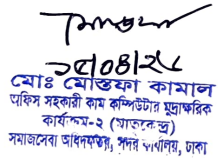 মোস্তফা
১৫/০৪/২৫
মোঃ মোস্তফা কামাল
অফিস সহকারী কাম কম্পিউটার মুদ্রাক্ষরিক
কার্যক্রম-২ (মাতৃকেন্দ্র)
সমাজসেবা অধিদফতর, সদর কার্যালয়, ঢাকা